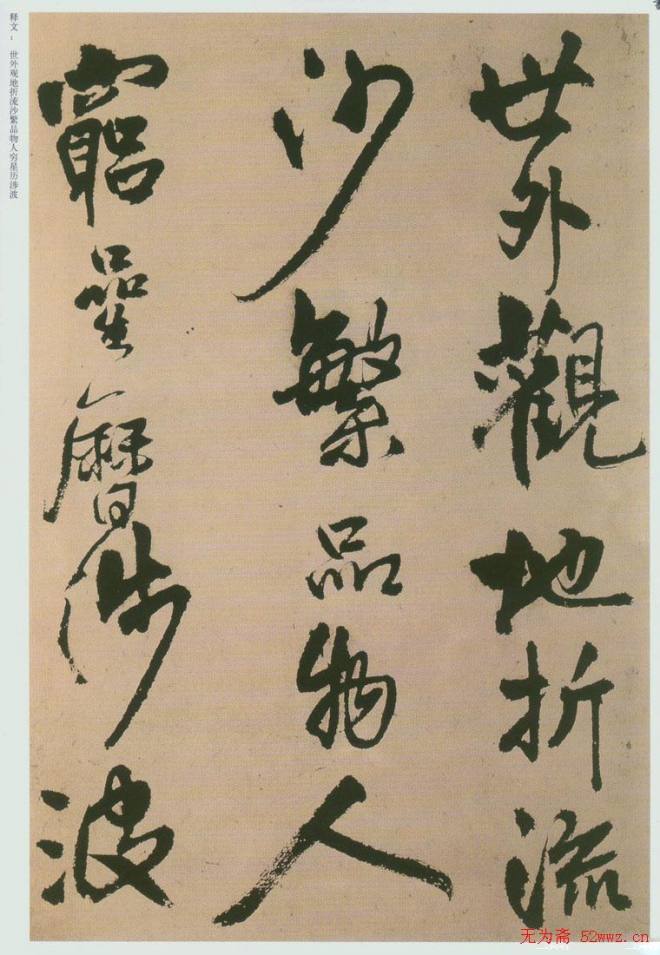 世外觀地折流
沙繁品物人
窮星曆涉波
释文：世外观地折流沙繁品物人穷星历涉波
无为斋 52wwz.cn